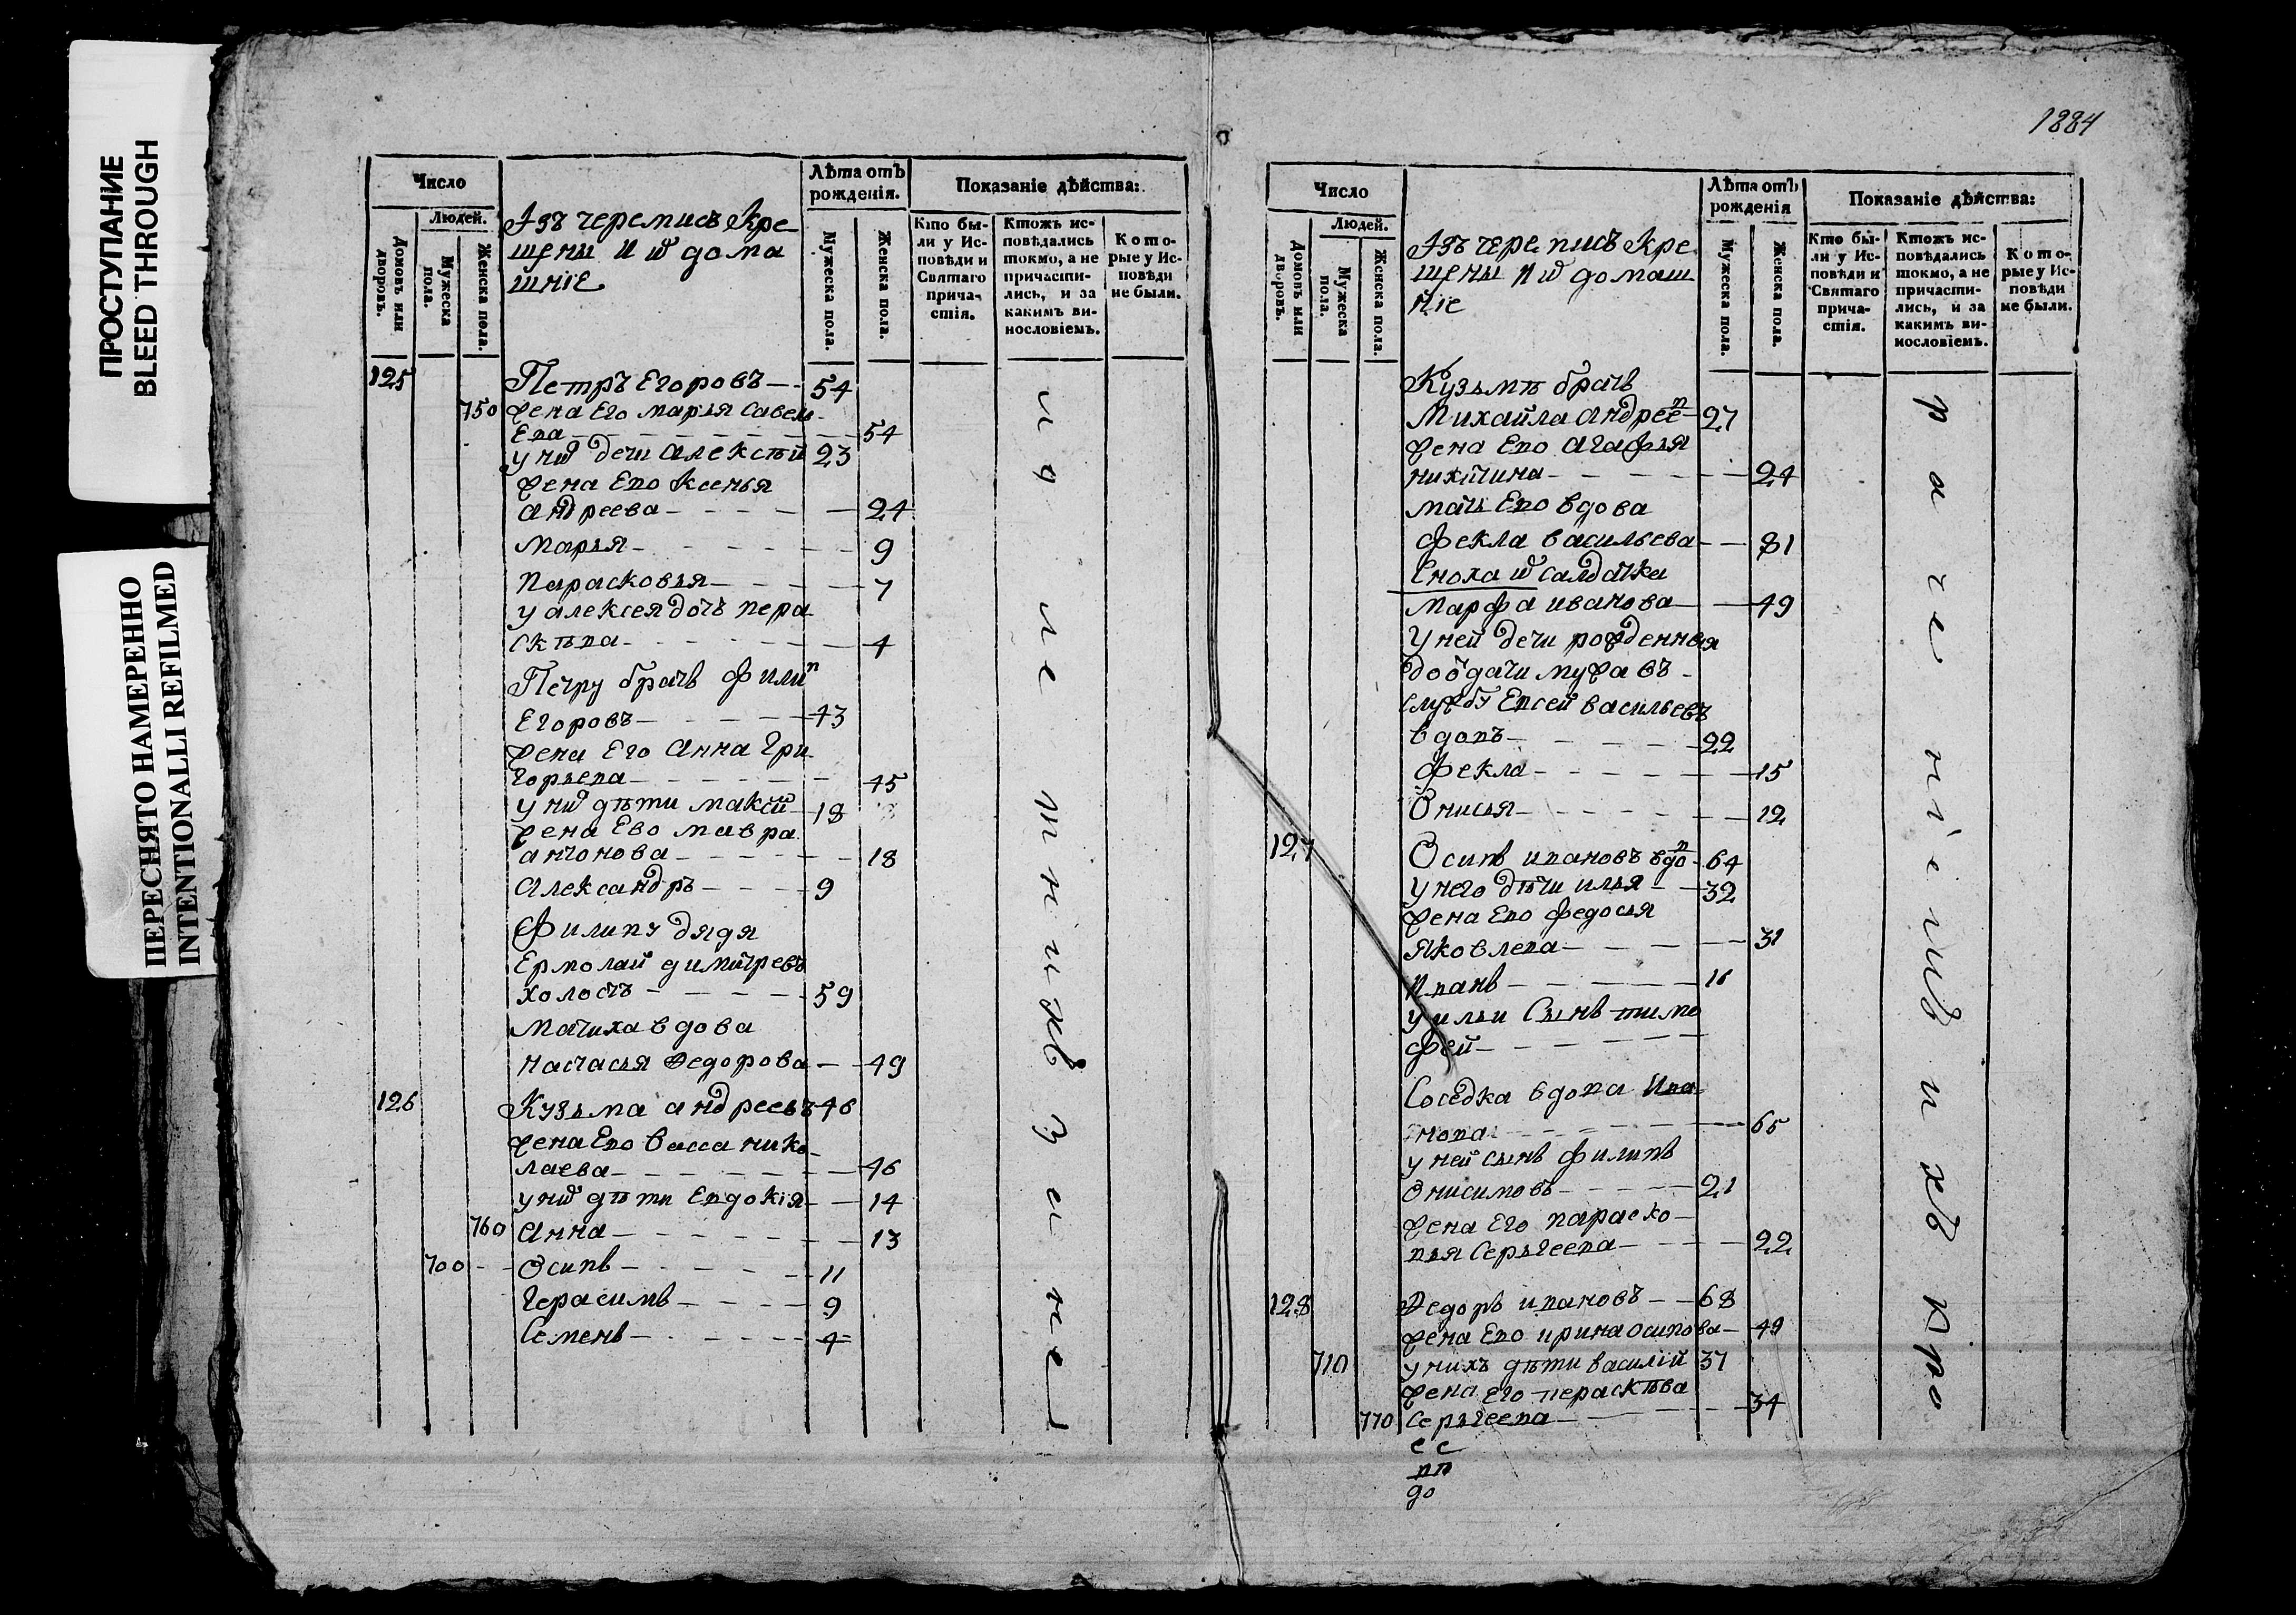 ПРОСТУПАНИЕ
BLEED THROUGH
ПЕРЕСНЯТО НАМЕРЕННО
INTENTIONALLI REFILMED
1884
Число
Людей.
Домовъ или дворовъ.
Мужеска пола.
Женска пола.
Изъ черемисъ кре
щены и ѿ дома
шніе
Лѣта отъ рожденія.
Мужеска пола.
Женска пола.
Показаніе дѣйства:
Кто бы-
ли у Ис-
повѣди и
Святаго
прича-
стія.
Ктожъ ис-
повѣдались
токмо, а не
причасти-
лись, и за
какимъ ви-
нословіемъ.
Кото-
рые у Ис-
повѣди
не были.
125 Петръ Егоровъ 54
750 жена Его марья савель
Ева 54
у ниѿ дети алексѣй 23
жена Ево ксенья
андреева 24
марья 9
парасковья 7
у алексея дочь пера
скѣва 4
Петру братъ филип
Егоровъ 43
жена Его анна гри
горьева 45
у ниѿ дѣти максим 18
жена Ево мавра
антонова 18
александръ 9
филипу дядя
Ермолай димитревъ
холостъ 59
мачиха вдова
настасья федорова 49
126 Кузьма андреевъ 46
жена Ево васса нико
лаева 46
у ниѿ дѣти Евдокія 14
760 анна 13
700 осипъ 11
герасимъ 9
семенъ 4
Число
Людей.
Домовъ или дворовъ.
Мужеска пола.
Женска пола.
Изъ черемисъ кре
щены и ѿ домаш
ніе
Лѣта отъ рожденія
Мужеска пола.
Женска пола.
Показаніе дѣйства:
Кто бы-
ли у Ис-
повѣди и
Святаго
прича-
стія.
Ктожъ ис-
повѣдались
токмо, а не
причасти-
лись, и за
какимъ ви-
нословіемъ.
Кото-
рые у Ис-
повѣди
не были.
Кузьмѣ братъ
Михайла андреев 27
жена Ево агафья
никитина 24
мать Ево вдова
фекла васильева 81
Сноха ѿ салдатка
марфа иванова 49
у ней дети рожденныя
до отдачи мужа въ
службу Евсей васильевъ
вдовъ 22
фекла 15
онисья 12
127 Осипъ ивановъ вдов 64
у него дѣти илья 32
жена Ево федосья
яковлева 31
иванъ 16
у ильи сынъ тимо
фей
Соседка вдова
нова 65
у ней сынъ филипъ
онисимовъ 21
жена Его параско
вья серьгеева 22
128 Федоръ ивановъ 68
жена Ево ирина осипова 49
710 у нихъ дѣти василій 37
жена Его пераскѣва
770 серьгеева 34
до